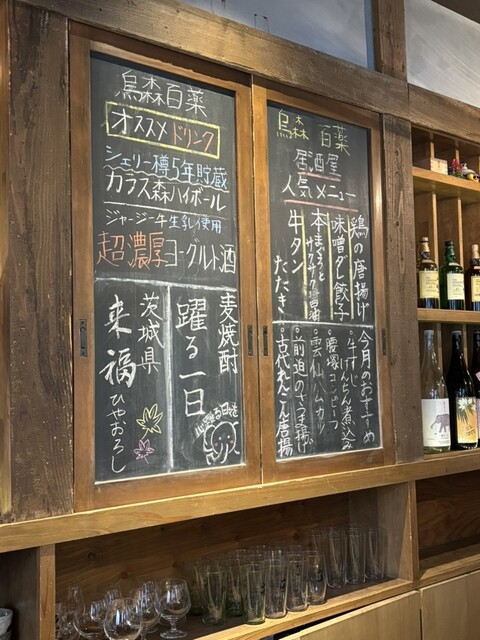 烏森百薬
オススメドリンク
シェリー樽5年貯蔵
カラス森ハイボール
ジャージー牛生乳使用
超濃厚ヨーグルト酒
麦焼酎
躍る一日
茨城県
来福
ひやおろし
烏森百薬
居酒屋
人気メニュー
鶏の唐揚げ
味噌ダレ餃子
本まぐろと
サクサク醤油
牛タン
たたき
今月のおすすめ
牛すじけんちん煮込み
腰塚コンビーフ
雲仙ハムカツ
前迫のさつま揚げ
古代れんこん唐揚